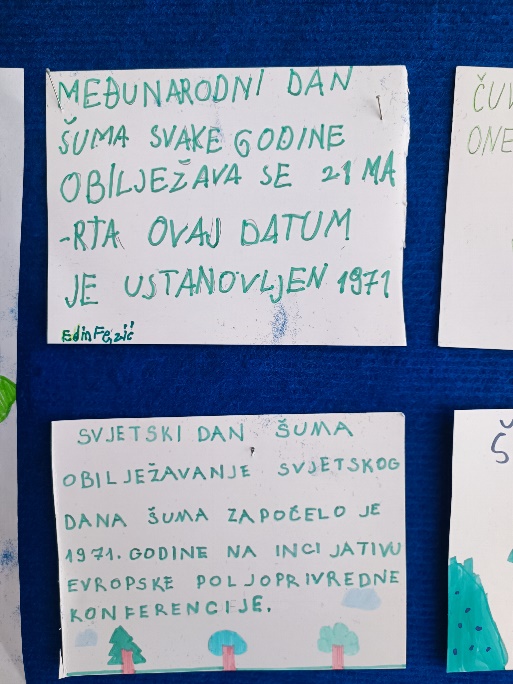 MEĐUNARODNI DAN
ŠUMA SVAKE GODINE
OBILJEŽAVA SE 21 MA
-RTA OVAJ DATUM
JE USTANOVLJEN 1971
Edin
SVJETSKI DAN ŠUMA
OBILJEŽAVANJE SVJETSKOG
DANA ŠUMA ZAPOČELO JE
1971. GODINE NA INCIJATIVU
EVROPSKE POLJOPRIVREDNE
KONFERENCIJE.
ČUV
ONE
Š